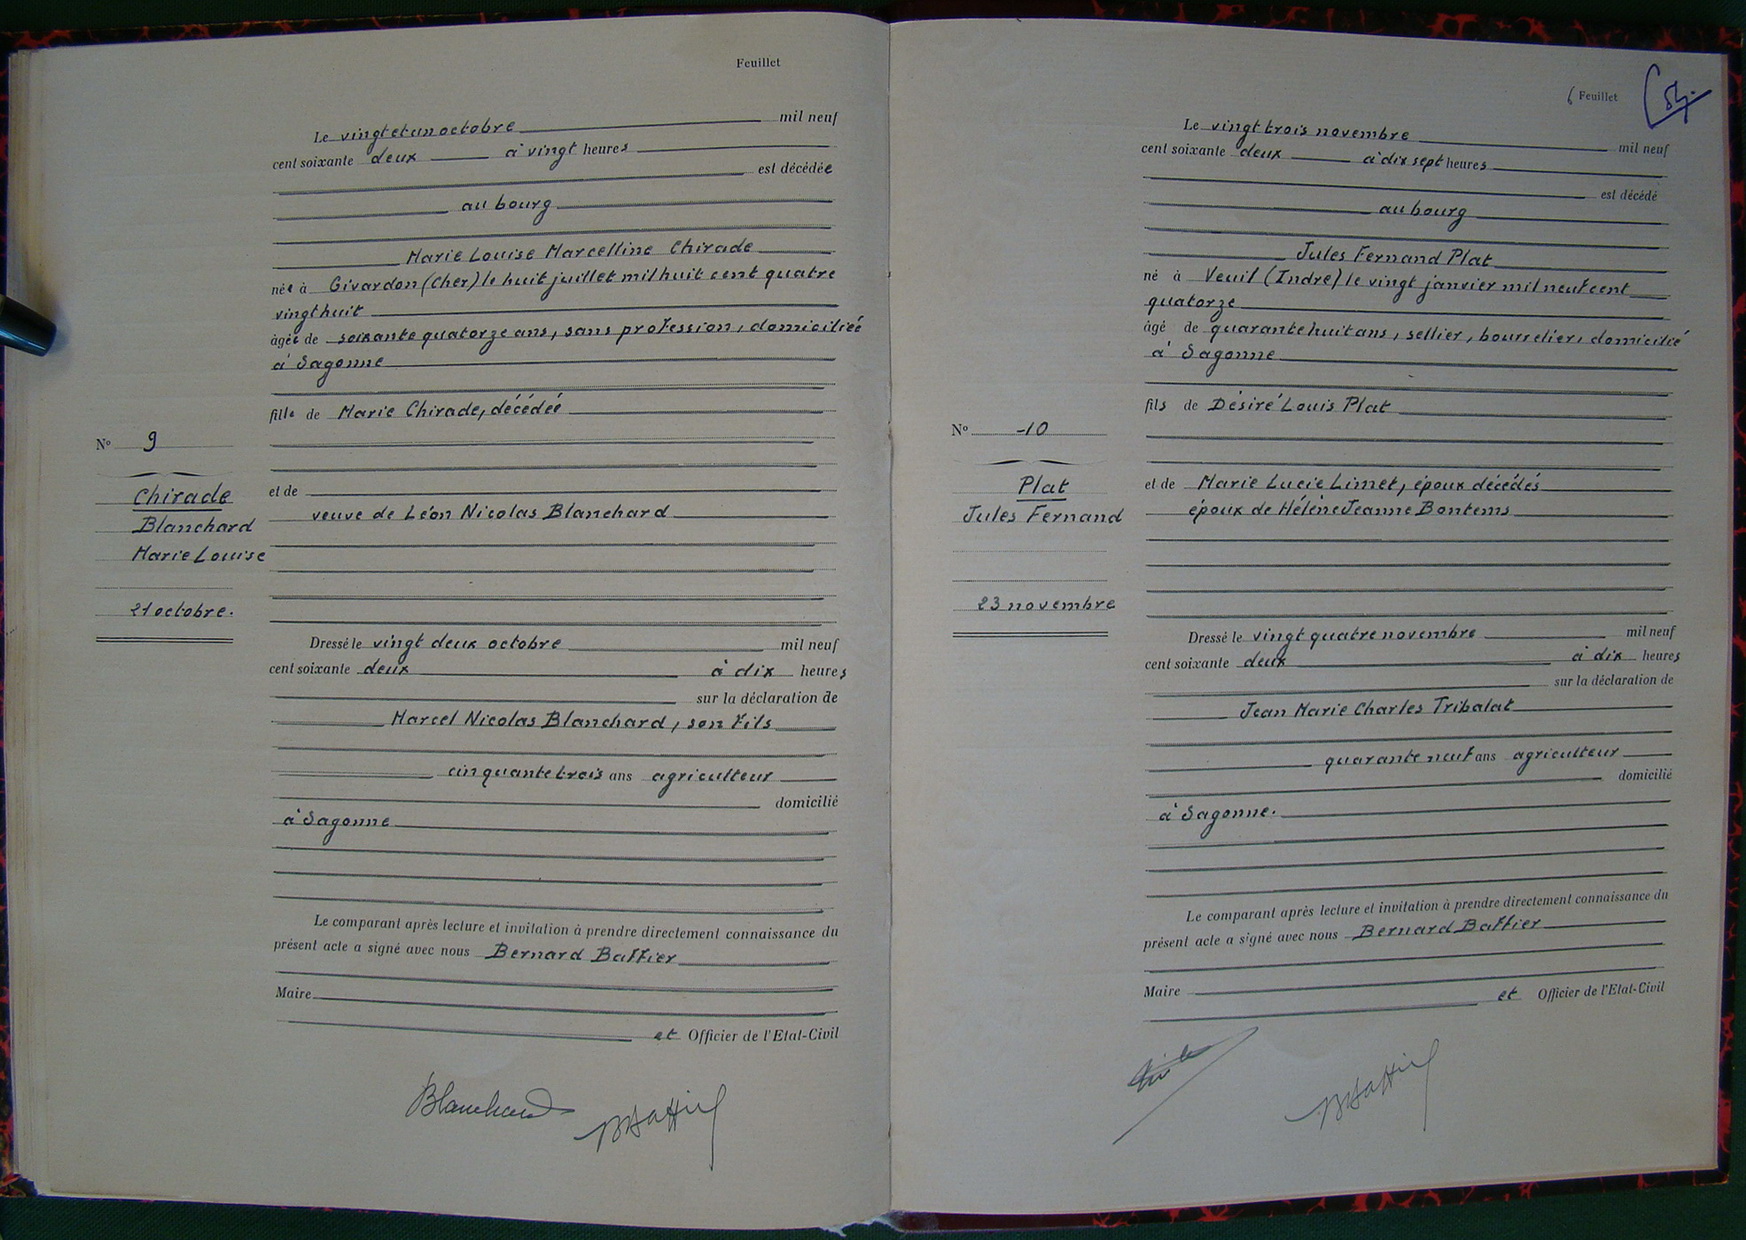 Feuillet
Le vingt et un octobre mil neuf
cent soixante deux à vingt heures
est décédée
au bourg
Marie Louise Marcelline Chirade
née à Givardon (Cher) le huit juillet mil huit cent quatre
vingt huit
âgée de soixante quatorze ans, sans profession, domiciliée
à Sagonne
fille de Marie Chirade, décédée
N° 9
Chirade
Blanchard
Marie Louise
21 octobre.
et de
veuve de Léon Nicolas Blanchard
Dressé le vingt deux octobre mil neuf
cent soixante deux à dix heures
sur la déclaration de
Marcel Nicolas Blanchard, son fils
cinquante trois ans agriculteur
domicilié
à Sagonne
Le comparant après lecture et invitation à prendre directement connaissance du
présent acte a signé avec nous Bernard Baffier
Maire
et Officier de l'Etat-Civil
Blanchard
BBaffier
Feuillet
54.
Le vingt trois novembre mil neuf
cent soixante deux à dix sept heures
est décédé
au bourg
Jules Fernand Plat
né à Veuil (Indre) le vingt janvier mil neuf cent
quatorze
âgé de quarante huit ans, sellier, bourrelier, domicilié
à Sagonne
fils de Désiré Louis Plat
N° 10
Plat
Jules Fernand
23 novembre
et de Marie Lucie Limet, époux décédés
époux de Hélène Jeanne Bontems
Dressé le vingt quatre novembre mil neuf
cent soixante deux à dix heures
sur la déclaration de
Jean Marie Charles Tribalat
quarante neuf ans agriculteur
domicilié
à Sagonne.
Le comparant après lecture et invitation à prendre directement connaissance du
présent acte a signé avec nous Bernard Baffier
Maire
et Officier de l'Etat-Civil
BBaffier